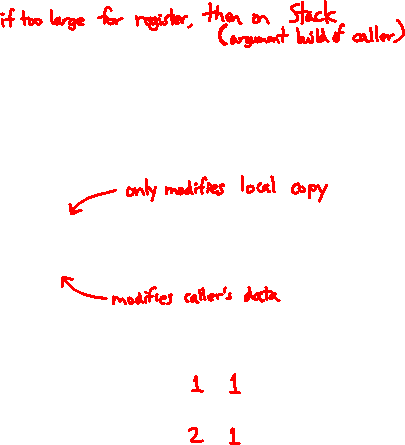 if too large for register, then on Stack
(argument build of caller)
only modifies local copy
modifies caller's data
1 1
2 1